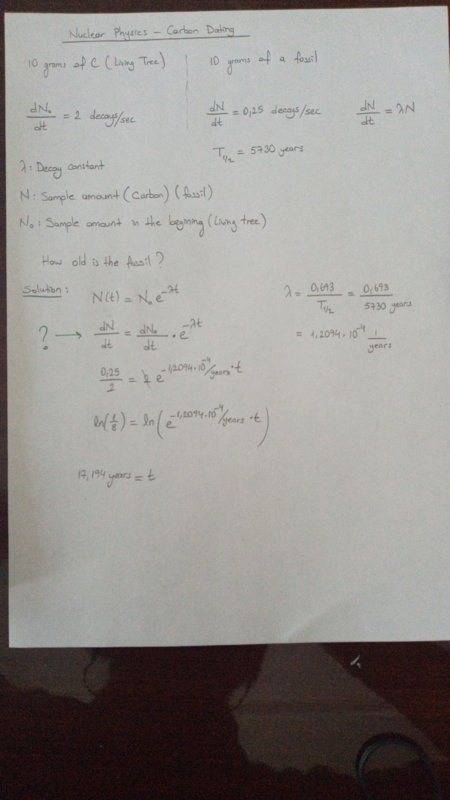 Nuclear Physics - Carbon Dating
10 grams of C (Living Tree)
10 grams of a fossil
dN₀/dt = 2 decays/sec
dN/dt = 0,25 decays/sec
dN/dt = λN
T₁/₂ = 5730 years
λ: Decay constant
N: Sample amount (Carbon) (fossil)
N₀: Sample amount in the begining (Living tree)
How old is the fossil?
Solution:
N(t) = N₀ e^-λt
λ = 0,693/T₁/₂ = 0,693/5730 years
= 1,2094·10^-4 1/years
? → dN/dt = dN₀/dt · e^-λt
0,25/2 = e^-1,2094·10^-4/years·t
ln(1/8) = ln(e^-1,2094·10^-4/years·t)
17,194 years = t